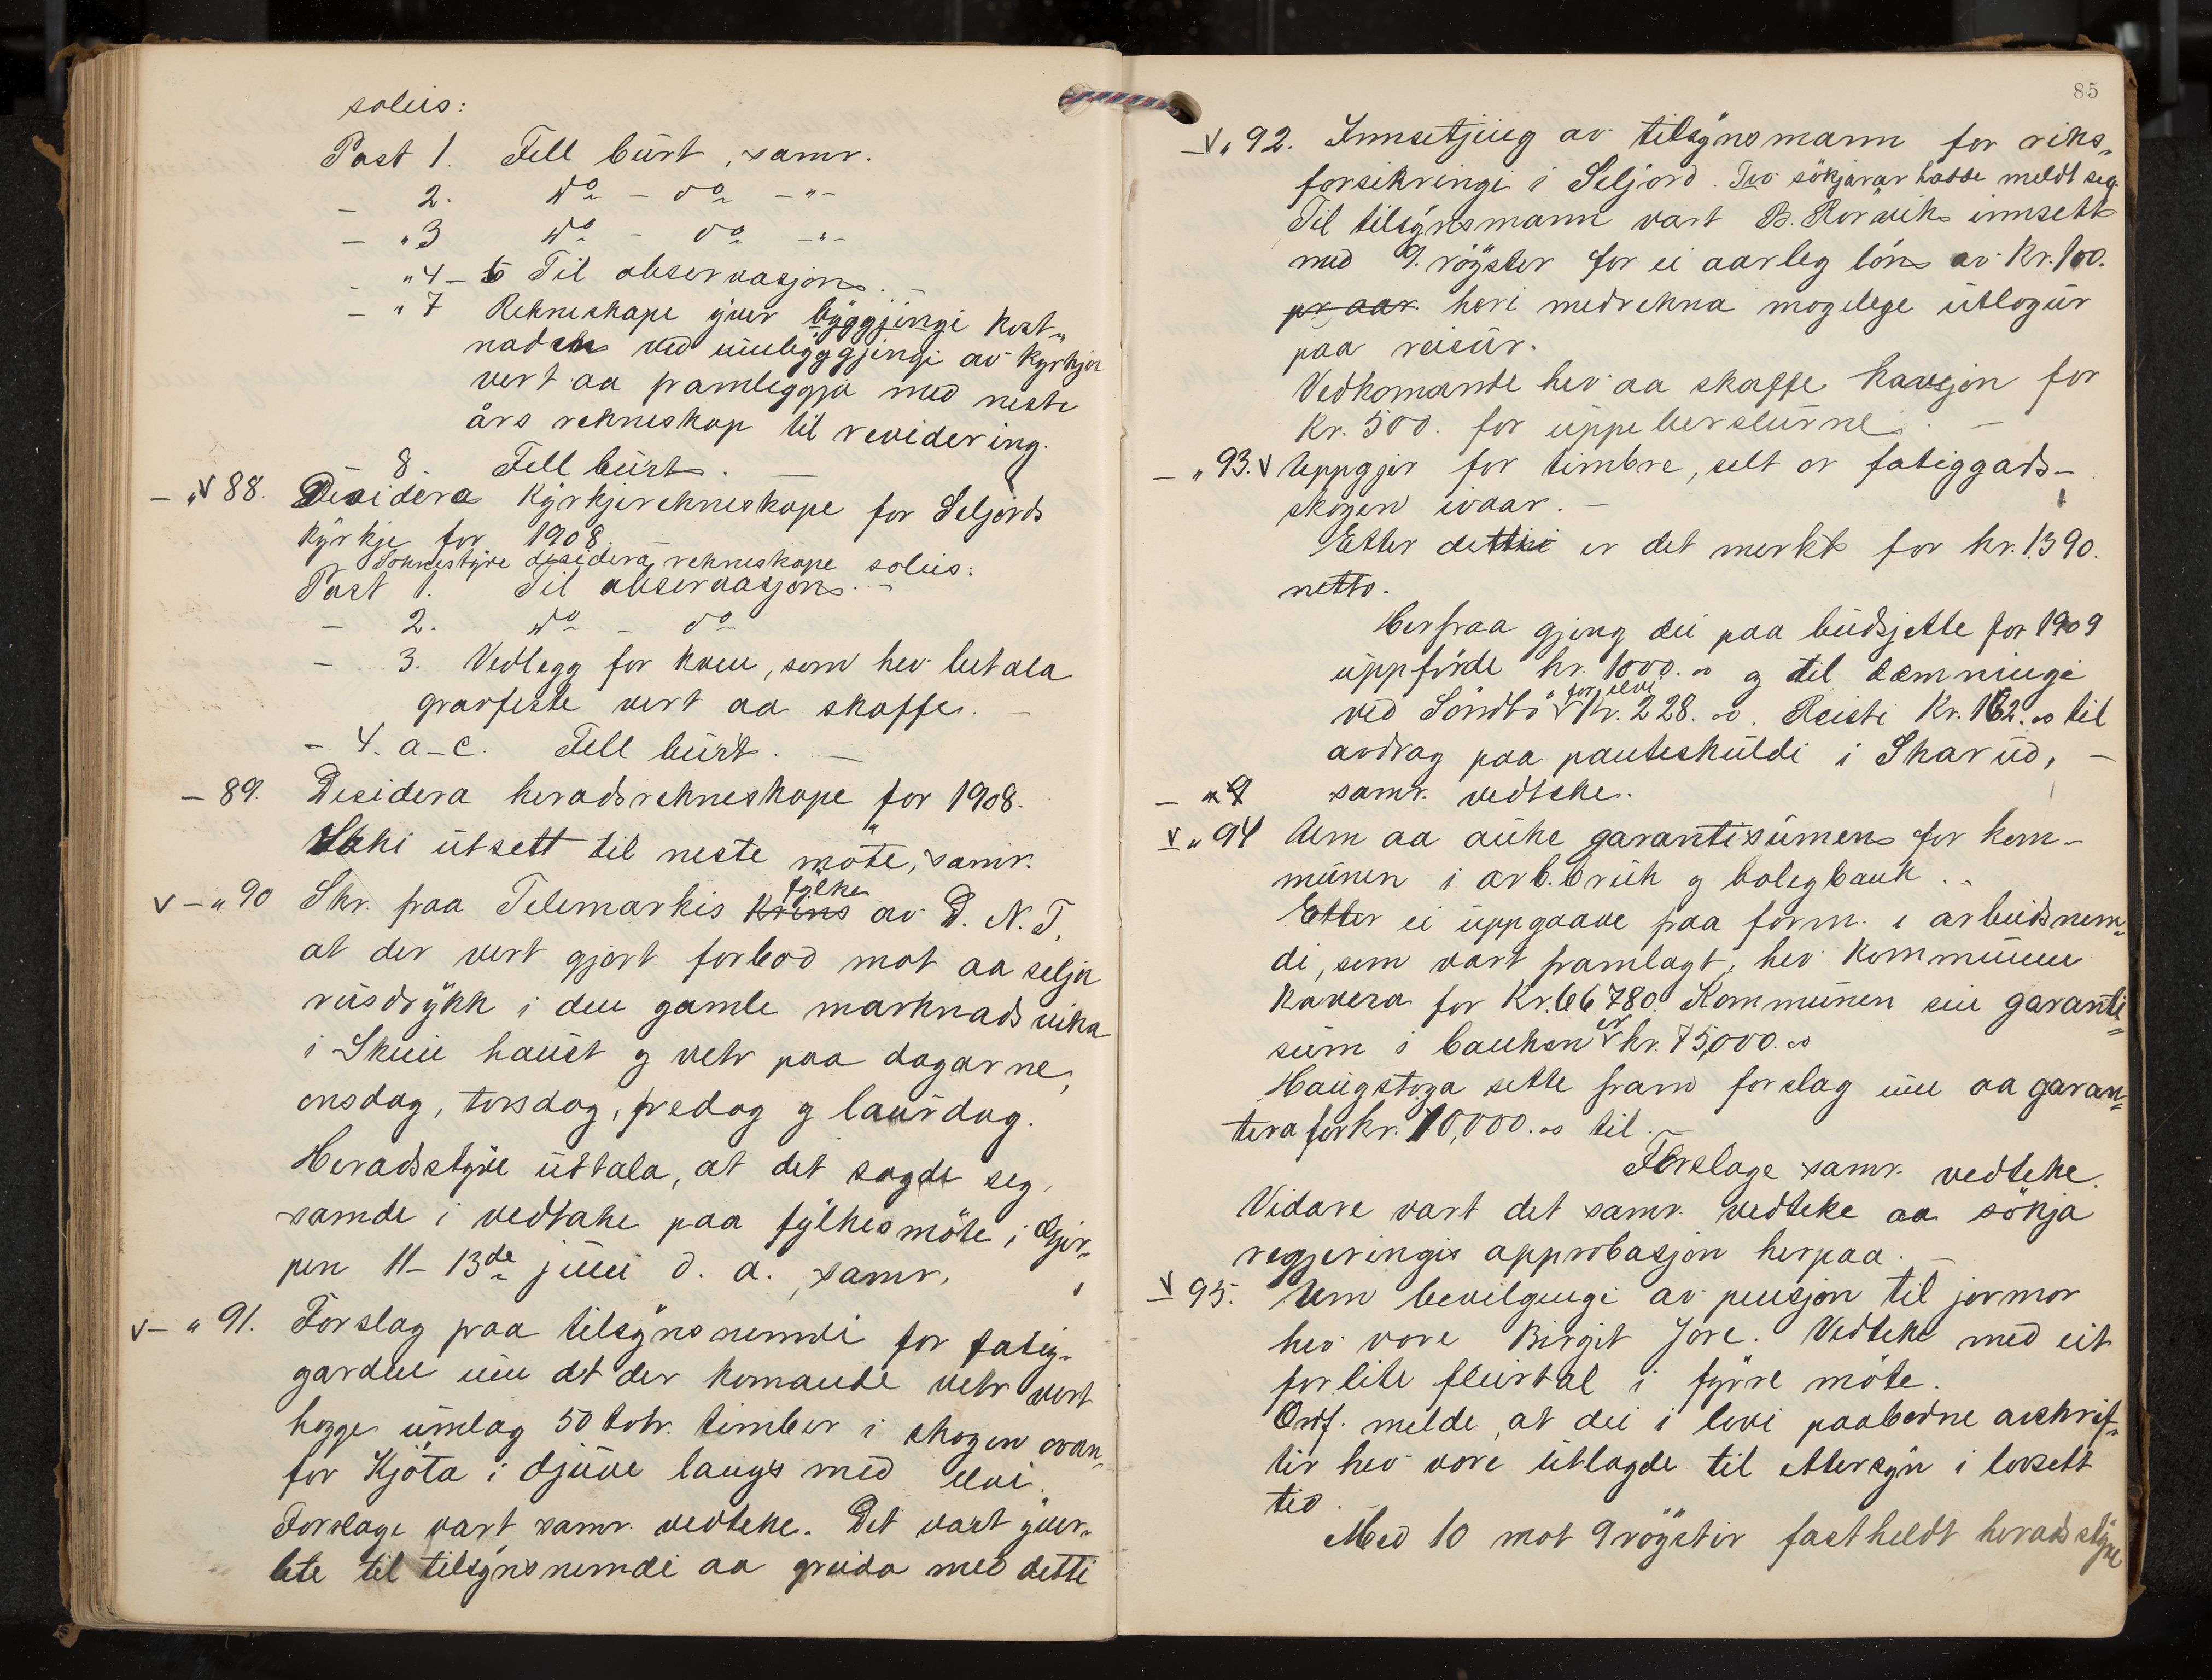 soleis:
Post 1. Fell burt, samr.
- 2. do - do - " -
- " 3 do - do - " -
- " 4 - 5 Til observasjon. -
- " 7 Rekneskape yver byggjingi kost-
naden ved umbyggjingi av kyrkja
vert aa framleggja med neste
års rekneskap til revidering.
8. Fell burt. -
- " V 88. Desidera Kyrkjerekneskape for Seljords
Kyrkje for 1908.
Soknestyre desidera rekneskape soleis:
Post 1. Til observasjon. -
- 2. do - do
- 3. Vedlegg for kven, som hev betala
gravfeste vert aa skaffe. -
- 4. a-c. Fell burt. -
- 89. Desidera heradsrekneskape for 1908.
Saki utsett til neste möte, samr.
V - " 90 Skr. fraa Telemarkis krins fylke av D. N. T,
at der vert gjort forbod mot aa selja
rusdrykk i den gamle marknadsvika
i Skien haust og vetr paa dagarne,
onsdag, torsdag, fredag og laurdag.
Heradsstyre uttala, at det sagde seg
samde i vedtake paa fylkesmöte i Gjer-
pen 11-13de juni d. a., samr.
V - " 91. Forslag fraa tilsynsnemdi for fatig-
garden um at der komande vetr vert
hogge umlag 50 tolv. timber i skogen ovan-
for Kjöta i Djuve langs med elvi.
Forslage vart samr. vedteke. Det vart yver-
lete til tilsynsnemdi aa greida med detti
85
- V " 92. Innsetjing av tilsynsmann for riks-
forsikringi i Seljord. Tvo sökjarar hadde meldt seg.
Til tilsynsmann vart B. Rorvik innsett
med 9. röyster for ei aarleg lön av Kr. 100.
pr aar heri medrekna mogelege utlogur
paa reisur.
Vedkomande hev aa skaffe kausjon for
Kr. 500. for uppeberslurne. -
- " 93. V Uppgjer for timbre, selt or fatiggards-
skogen ivaar. -
Etter detti er det merkt for kr. 1390.
netto.
Herfraa gjeng dei paa budsjette for 1909
uppförde kr. 1000.00 og til dæmningi
ved Söndbö for elvi Kr. 228.00. Reisti Kr. 162.00 til
avdrag paa panteskuldi i Skarud, -
samr. vedteke.
V " 94 Um aa auke garantisumen for kom-
munen i arb. bruk og boligbank. -
Etter ei uppgaave fraa form. i arbeidsnem-
di, som vart framlagt, hev kommunen
kavera for Kr. 66780. Kommunen sin garanti-
sum i banken er kr. 75,000.00
Haugstoga sette fram forslag um aa garan-
tera for kr. 10,000.00 til.
Forslage samr. vedteke.
Vidare vart det samr. vedteke aa sökja
regjeringis approbasjon herpaa. -
V 95. Um bevilgingi av pensjon til jormor
hev vore Birgit Jore. Vedteke med eit
forlite fleirtal i fyrre möte.
Ordf. melde, at dei i lovi paabodne avskrif-
tir hev vore utlagde til ettersyn i lovsett
tid.
Med 10 mot 9 röystir fastheldt heradsstyre